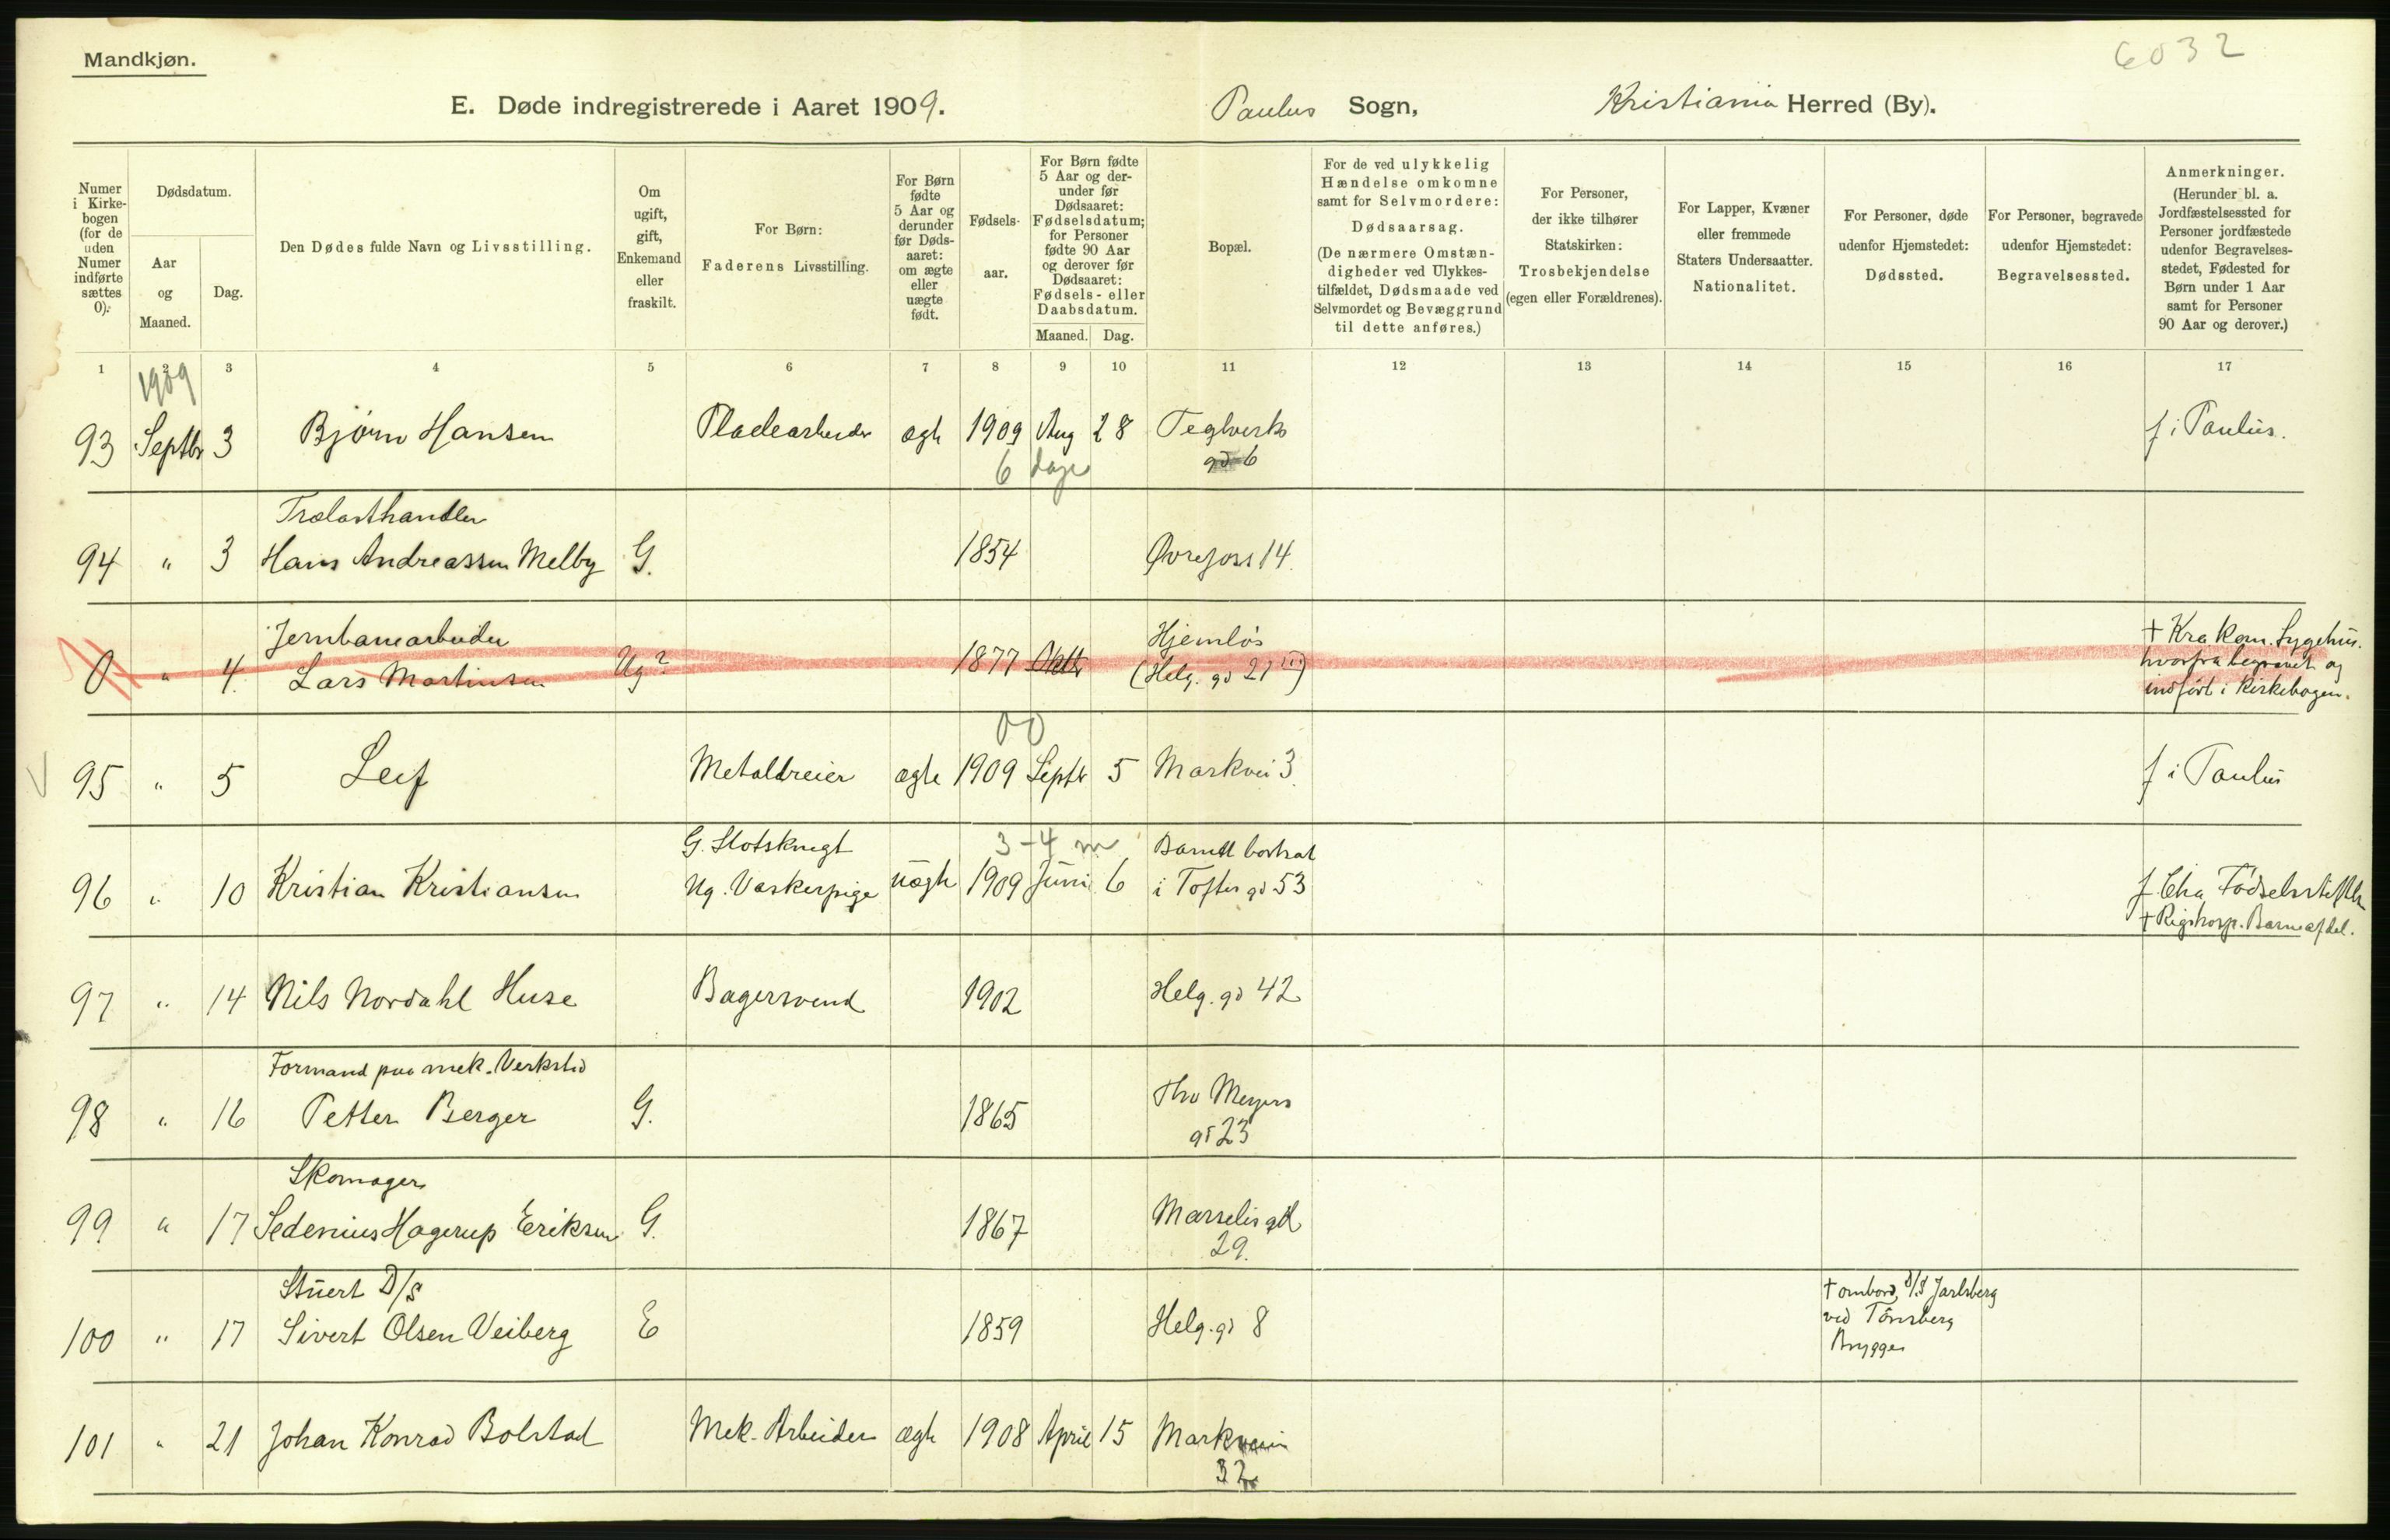 Mandkjøn.
6032
E. Døde indregistrerede i Aaret 1909. Paulus Sogn, Kristiania Herred (By).
Numer i Kirke-bogen (for de uden Numer indførte sættes 0):
Dødsdatum.
Aar og Maaned.
Dag.
Den Dødes fulde Navn og Livsstilling.
Om ugift, gift, Enkemand eller fraskilt.
For Børn: Faderens Livsstilling.
For Børn fødte 5 Aar og derunder før Døds-aaret: om ægte eller uægte født.
Fødsels-aar.
For Børn fødte 5 Aar og der-under før Dødsaaret: Fødselsdatum; for Personer fødte 90 Aar og derover før Dødsaaret: Fødsels- eller Daabsdatum.
Maaned. Dag.
Bopæl.
For de ved ulykkelig Hændelse omkomne samt for Selvmordere: Dødsaarsag. (De nærmere Omstæn-digheder ved Ulykkes-tilfældet, Dødsmaade ved Selvmordet og Bevæggrund til dette anføres.)
For Personer, der ikke tilhører Statskirken: Trosbekjendelse (egen eller Forældrenes).
For Lapper, Kvæner eller fremmede Staters Undersaatter. Nationalitet.
For Personer, døde udenfor Hjemstedet: Dødssted.
For Personer, begravede udenfor Hjemstedet: Begravelsessted.
Anmerkninger. (Herunder bl. a. Jordfæstelsessted for Personer jordfæstede udenfor Begravelses-stedet, Fødested for Børn under 1 Aar samt for Personer 90 Aar og derover.)
1 2 3 4 5 6 7 8 9 10 11 12 13 14 15 16 17
1909
93 Septbr 3 Bjørn Hansen Pladearbeider ægte 1909 Aug 28 Teglverks f i Paulus.
6 dage gd 6
Trælasthandler
94 " 3 Hans Andreassen Melby G. 1854 Øvrefoss 14.
Jernbanearbeider Hjemløs + Kra Kom. Sygehus.
0 " 4. Lars Martinsen Ug? 1877 (Helg. gd 21 III) hvorfra begravet og
indført i Kirkebogen.
00
95 " 5 Leif Metaldreier ægte 1909 Septbr 5 Markvei 3. f i Paulus
G. Slotsknegt 3-4 m Barnet bortsat
96 " 10 Kristian Kristiansen Ug. Vaskerpige uægte 1909 Juni 6 i Toftes gd 53 f Chra Fødselsstiftelse
+ Rigshosp. Barneafdel.
97 " 14 Nils Nordahl Huse Bagersvend 1902 Helg. gd 42
Formand paa mek. Verksted
98 " 16 Petter Berger G. 1865 Thv Meyers
gd 23
Skomager
99 " 17 Sedenius Hagerup Eriksen G. 1867 Marselis gd
29.
Stuert D/S + ombord D/S Jarlsberg
100 " 17 Sivert Olsen Veiberg E 1859 Helg. gd 8 ved Tønsberg
Brygge
101 " 21 Johan Konrad Bolstad Mek. Arbeider ægte 1908 April 15 Markveien
32